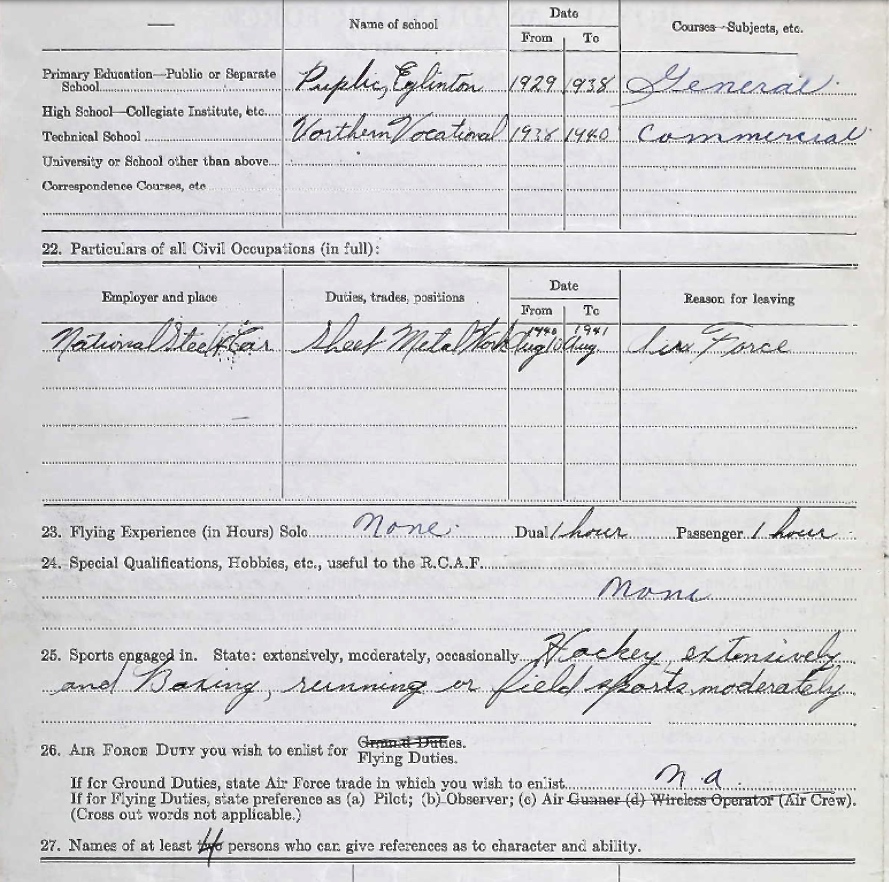 Name of school Date Courses—Subjects, etc.
From To
Primary Education—Public or Separate
School Public, Eglinton 1929 1938 General
High School—Collegiate Institute, etc.
Technical School Northern Vocational 1938 1940 Commercial
University or School other than above
Correspondence Courses, etc
22. Particulars of all Civil Occupations (in full):
Employer and place Duties, trades, positions Date Reason for leaving
From To
1940 1941
National Steel Car Sheet Metal Work Aug Aug Air Force
23. Flying Experience (in Hours) Solo None. Dual 1 hour Passenger 1 hour
24. Special Qualifications, Hobbies, etc., useful to the R.C.A.F.
None
25. Sports engaged in. State: extensively, moderately, occasionally Hockey, extensively
and Boxing, running or field sports, moderately
26. AIR FORCE DUTY you wish to enlist for Ground Duties.
Flying Duties.
If for Ground Duties, state Air Force trade in which you wish to enlist n.a.
If for Flying Duties, state preference as (a) Pilot; (b) Observer; (c) Air Gunner (d) Wireless Operator (Air Crew).
(Cross out words not applicable.)
27. Names of at least 4 persons who can give references as to character and ability.